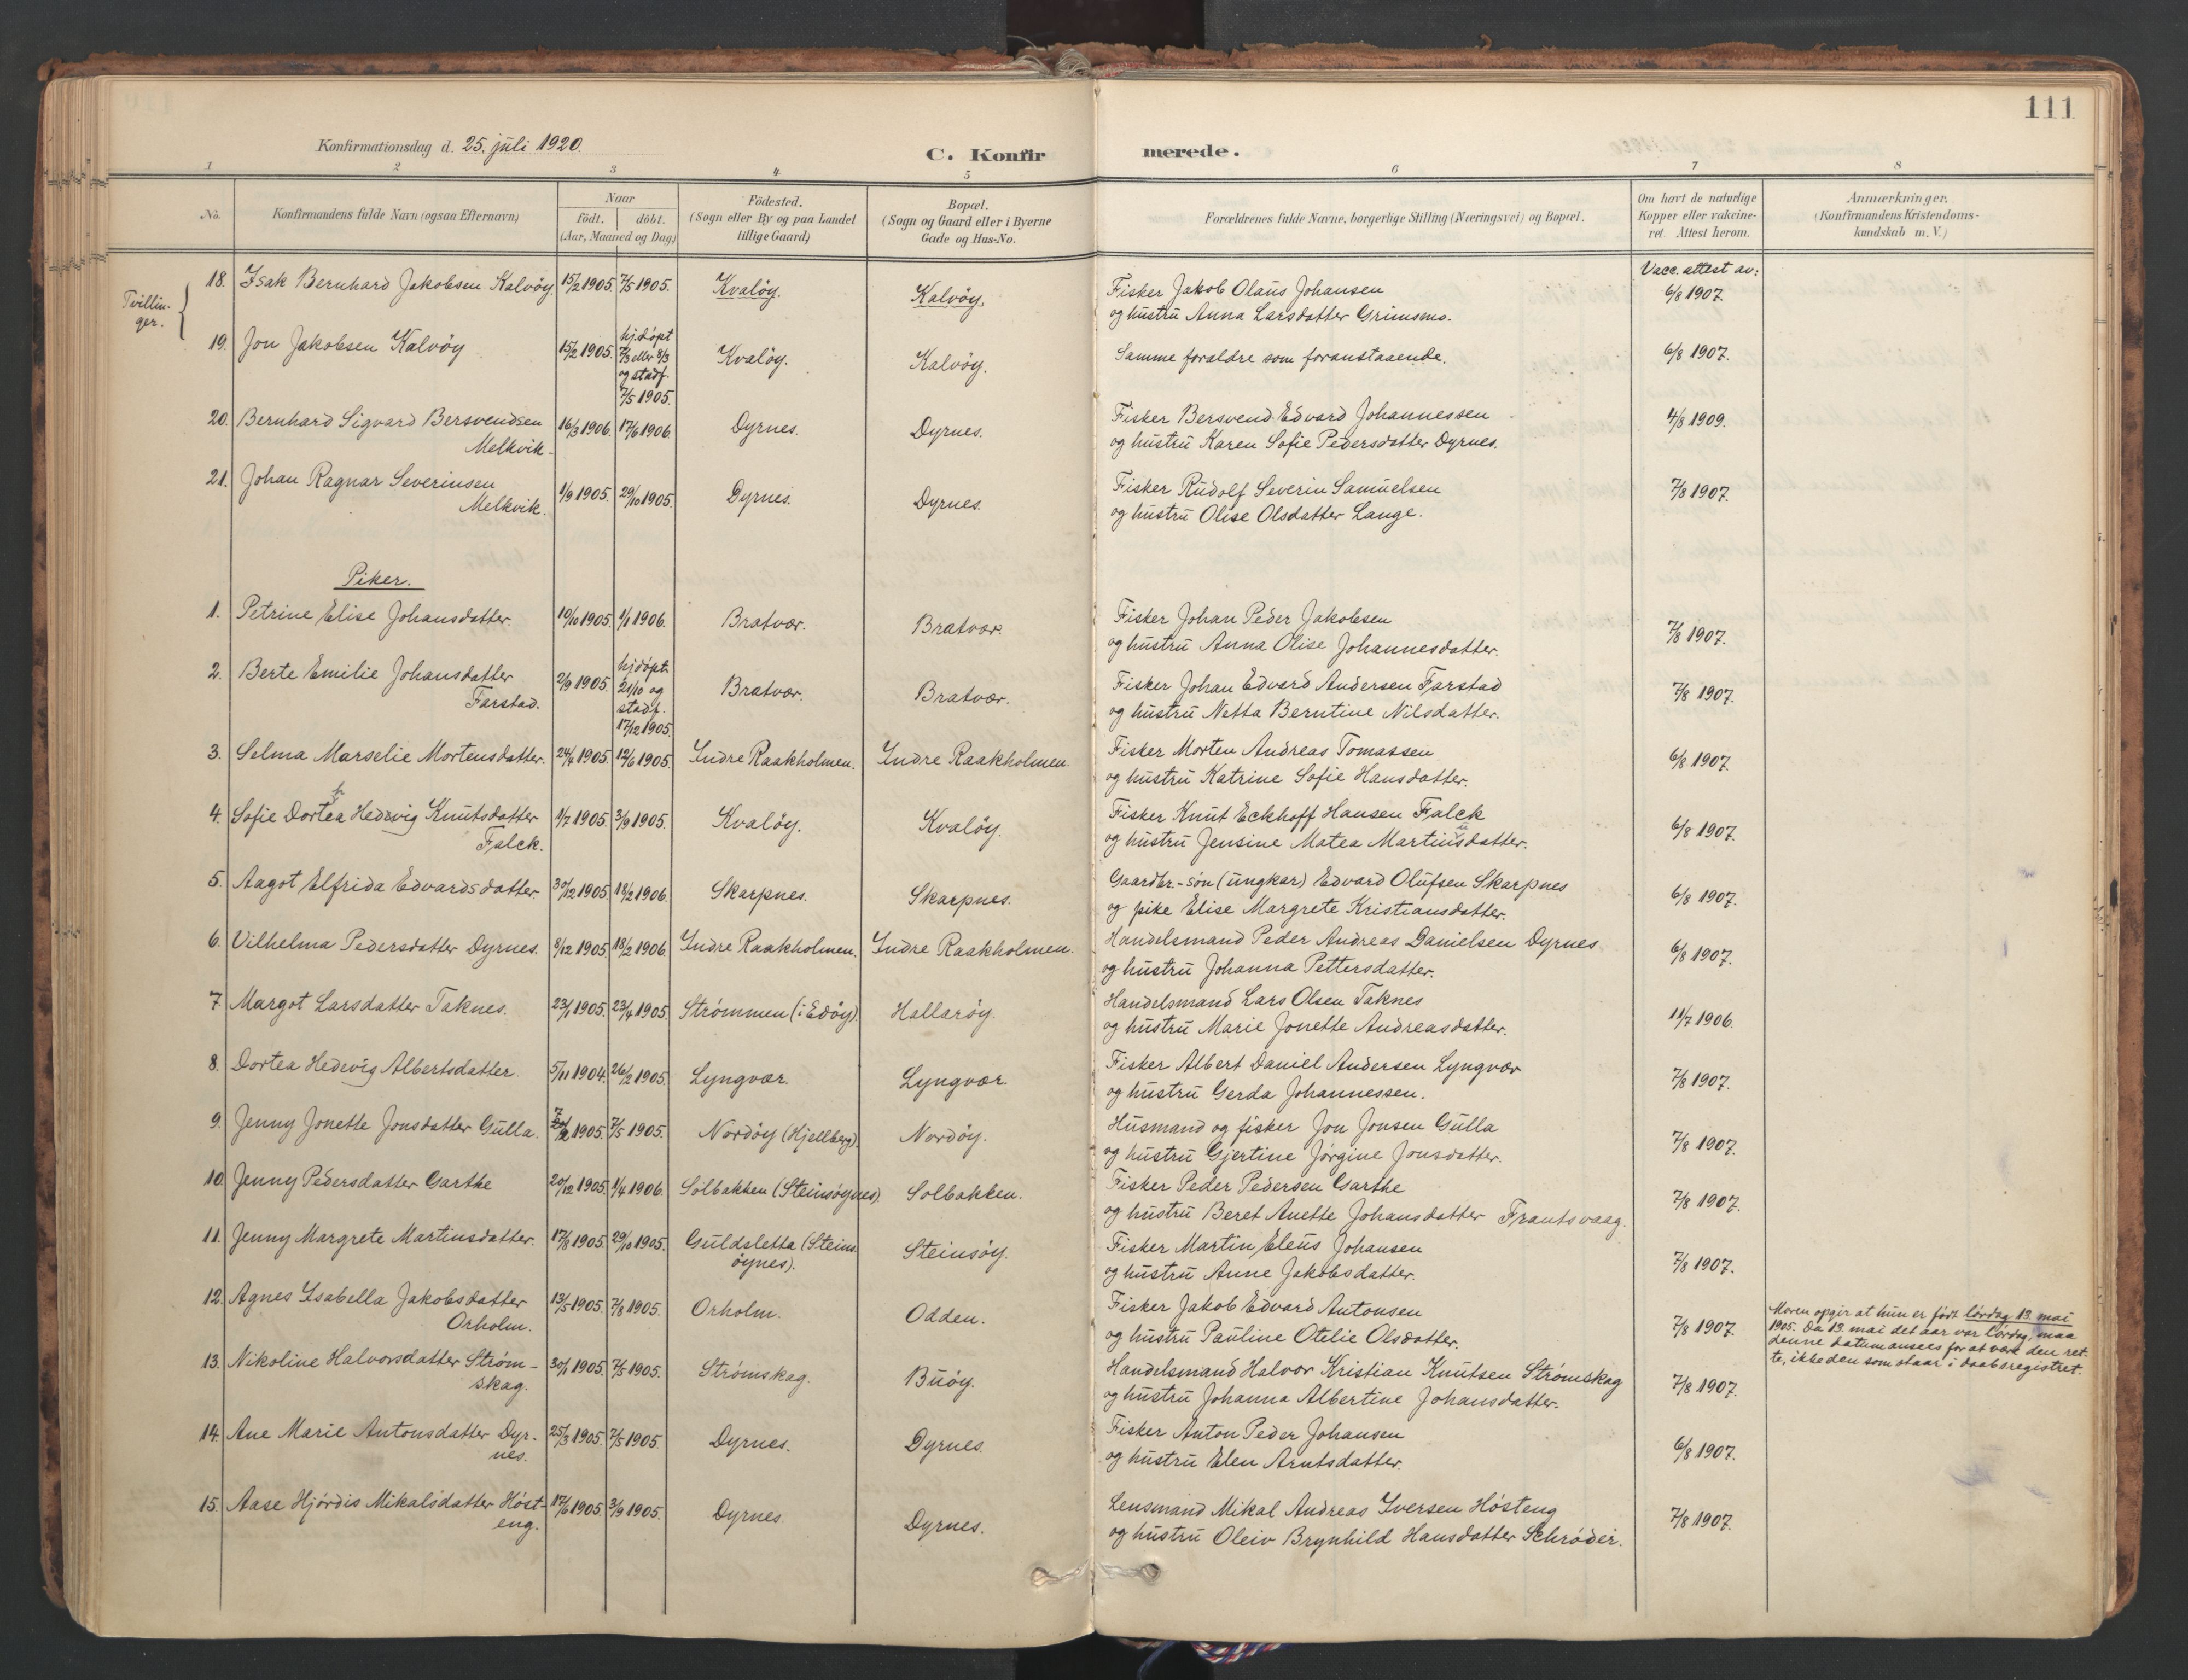 111
Konfirmationsdag d. 25. juli 1920.
C. Konfirmerede.
1 2 3 4 5 6 7 8
No.
Konfirmandens fulde Navn (ogsaa Efternavn)
Naar
födt. döbt.
(Aar, Maaned og Dag)
Födested.
(Sogn eller By og paa Landet
tillige Gaard)
Bopæl.
(Sogn og Gaard eller i Byerne
Gade og Hus-No.
Forældrenes fulde Navne, borgerlige Stilling (Næringsvei) og Bopæl.
Om havt de naturlige
Kopper eller vakcine-
ret. Attest herom.
Anmærkninger.
(Konfirmandens Kristendoms-
kundskab m. V.)
Vacc. attest av:
Tvillin-
ger.
18. Isak Bernhard Jakobsen Kalvöy. 15/2 1905. 7/5 1905. Kvalöy. Kalvöy. Fisker Jakob Olaus Johansen 6/8 1907.
og hustru Anna Larsdatter Grimsmo.
19. Jon Jakobsen Kalvöy 15/2 1905. hj.döpt
7/3 eller 8/3
og stadf.
7/5 1905. Kvalöy. Kalvöy. Samme foraldre som foranstaaende. 6/8 1907.
20. Bernhard Sigvard Bersvendsen
Melkvik. 16/3 1906. 17/6 1906. Dyrnes. Dyrnes. Fisker Bersvend Edvard Johannessen 4/8 1909.
og hustru Karen Sofie Pedersdatter Dyrnes.
21. Johan Ragnar Severinsen
Melkvik. 1/9 1905. 29/10 1905. Dyrnes. Dyrnes. Fisker Rudolf Severin Samuelsen 7/8 1907.
og hustru Olise Olsdatter Lange.
Piker.
1. Petrine Elise Johansdatter. 10/10 1905. 1/1 1906. Bratvær. Bratvær. Fisker Johan Peder Jakobsen 7/8 1907.
og hustru Anna Olise Johannesdatter.
2. Berte Emilie Johansdatter
Farstad. 2/9 1905. hjdöpt
21/10 og
stadf.
17/12 1905. Bratvær. Bratvær. Fisker Johan Edvard Andersen Farstad 7/8 1907.
og hustru Netta Berntine Nilsdatter.
3. Selma Marselie Mortensdatter. 24/4 1905. 12/6 1905. Indre Raakholmen. Indre Raakholmen. Fisker Morten Andreas Tomassen 6/8 1907.
og hustru Katrine Sofie Hansdatter.
4. Sofie Dortea Hedevig Knutsdatter
Falck. 1/7 1905. 3/9 1905. Kvalöy. Kvalöy. Fisker Knut Eckhoff Hansen Falck 6/8 1907.
og hustru Jensine Matea Martinsdatter.
5. Aagot Elfrida Edvardsdatter. 30/12 1905. 18/2 1906. Skarpnes. Skarpnes. Gaardbr.-sön (ungkar) Edvard Olufsen Skarpnes 6/8 1907.
og pike Elise Margrete Kristiansdatter.
6. Vilhelma Pedersdatter Dyrnes. 8/12 1905. 18/2 1906. Indre Raakholmen. Indre Raakholmen. Handelsmand Peder Andreas Danielsen Dyrnes 6/8 1907.
og hustru Johanna Pettersdatter.
7. Margot Larsdatter Taknes. 23/1 1905. 23/4 1905. Strømmen (i Edöy). Hallaröy. Handelsmand Lars Olsen Taknes 11/7 1906.
og hustru Marie Jonette Andreasdatter.
8. Dortea Hedevig Albertsdatter. 5/11 1904. 26/2 1905. Lyngvær. Lyngvær. Fisker Albert Daniel Andersen Lyngvær 7/8 1907.
og hustru Gerda Johannessen.
9. Jenny Jonette Jonsdatter Gulla. 7/2 1905. 7/5 1905. Nordöy (Hjellberg). Nordöy. Husmand og fisker Jon Jonsen Gulla 7/8 1907.
og hustru Gjertine Jörgine Jonsdatter.
10. Jenny Pedersdatter Garthe 20/12 1905. 1/4 1906. Solbakken (Steinsöynes). Solbakken. Fisker Peder Pedersen Garthe 7/8 1907.
og hustru Beret Anette Johansdatter Frantsvaag.
11. Jenny Margrete Martinsdatter. 17/8 1905. 29/10 1905. Guldsletta (Steins
öynes). Steinsöy. Fisker Martin Eleus Johansen 7/8 1907.
og hustru Anne Jakobsdatter.
12. Agnes Isabella Jakobsdatter
Orholm. 13/5 1905. 7/8 1905. Orholm. Odden. Fisker Jakob Edvard Antonsen 7/8 1907.
og hustru Pauline Otelie Olsdatter.
Moren opgir at hun er født lørdag 13. mai
1905. Da 13. mai det aar var lørdag, maa
denne datum ansees for at være den ret-
te, ikke den som staar i daabsregistret.
13. Nikoline Halvorsdatter Strøm-
skag. 30/1 1905. 7/5 1905. Strømskag. Buöy. Handelsmand Halvor Kristian Knutsen Strømskag 7/8 1907.
og hustru Johanna Albertine Johansdatter.
14. Ane Marie Antonsdatter Dyr-
nes. 25/3 1905. 7/5 1905. Dyrnes. Dyrnes. Fisker Anton Peder Johansen 6/8 1907.
og hustru Elen Arntsdatter.
15. Aase Hjördis Mikalsdatter Höst-
eng. 17/6 1905. 3/9 1905. Dyrnes. Dyrnes. Lensmand Mikal Andreas Iversen Hösteng 7/8 1907.
og hustru Oleiv Brynhild Hansdatter Schröder.